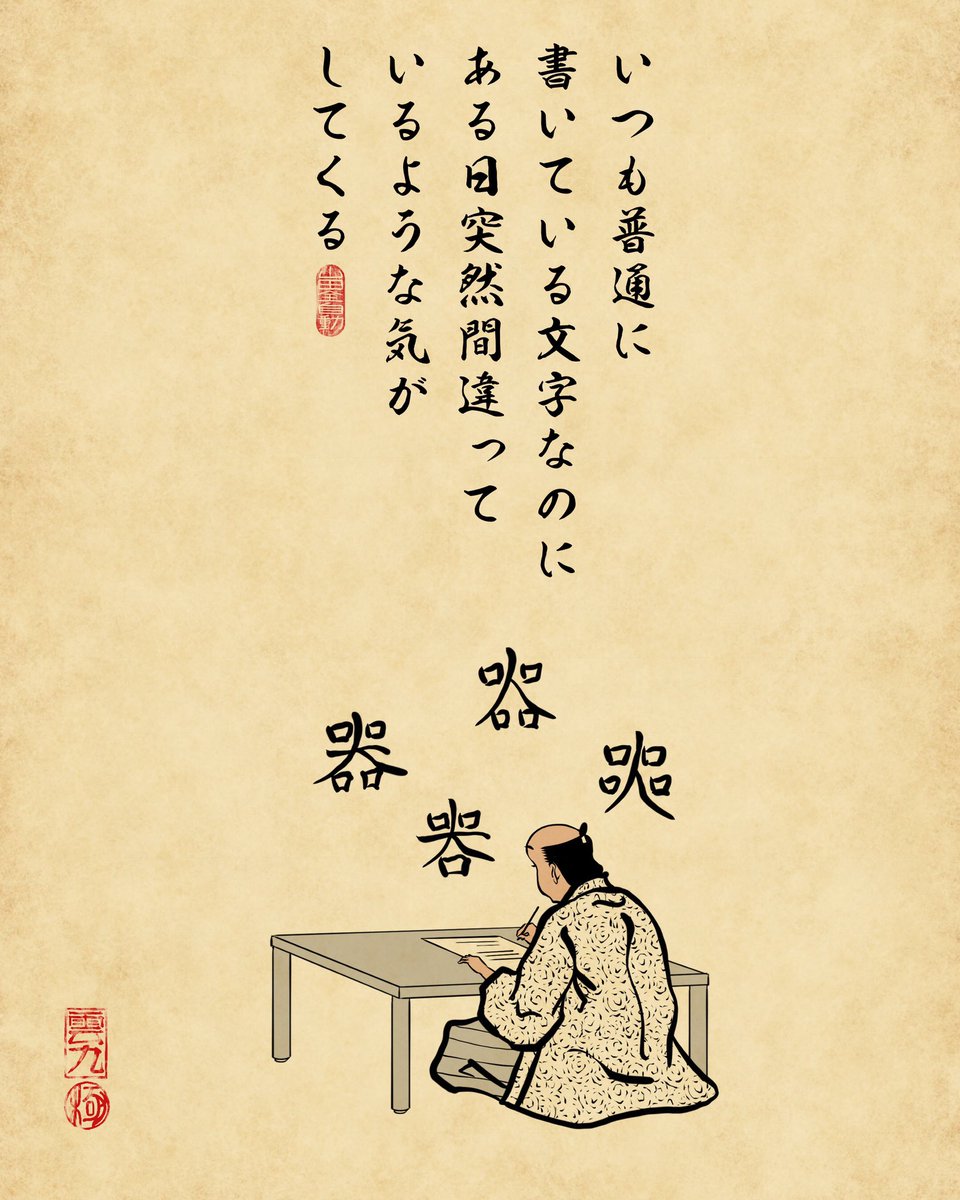 いつも普通に
書いている文字なのに
ある日突然間違って
いるような気が
してくる
山田全自動